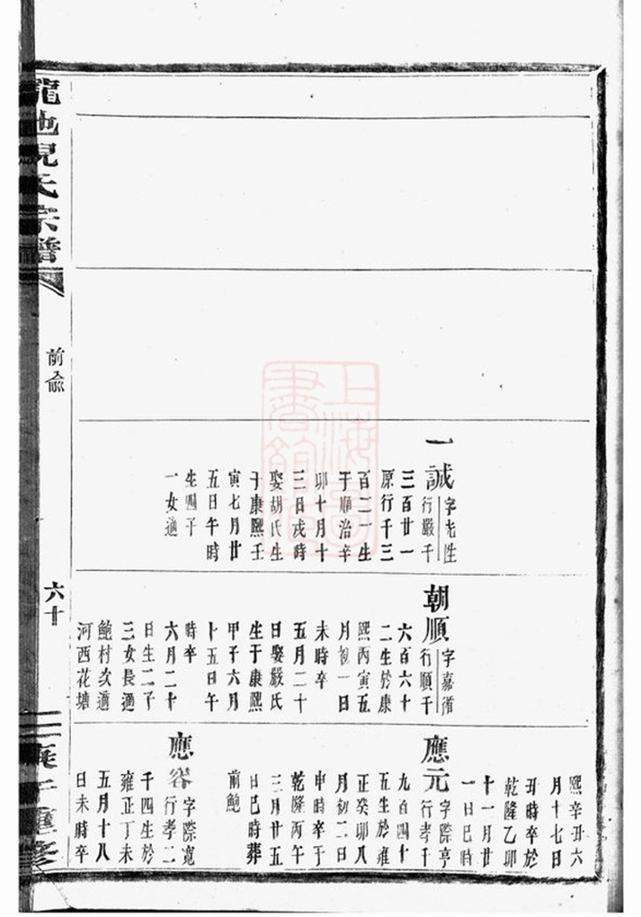 一誠
字先性
行嚴千
三百廿一
原行千三
百二一生
于順治辛
卯十月十
三日戌時
娶胡氏生
于康熙壬
寅七月廿
五日午時
生四子
一女適
朝順
字嘉循
行順千
六百六十
二生於康
熙丙寅五
月初一日
未時卒
五月二十
日娶嚴氏
生于康熙
甲子六月
十五日午
時卒
六月二十
日生二子
三女長適
鮑村次適
河西花塘
熙辛丑六
月十七日
丑時卒於
乾隆乙卯
十一月廿
一日巳時
應元
字際亨
行孝千
九百四十
五生於雍
正癸卯八
月初二日
申時卒于
乾隆丙午
三月廿五
日巳時葬
前鮑
應容
字際寬
行孝二
千四生於
雍正丁未
五月十八
日未時卒
龍池氏宗譜
前俞
六十
庚子重修